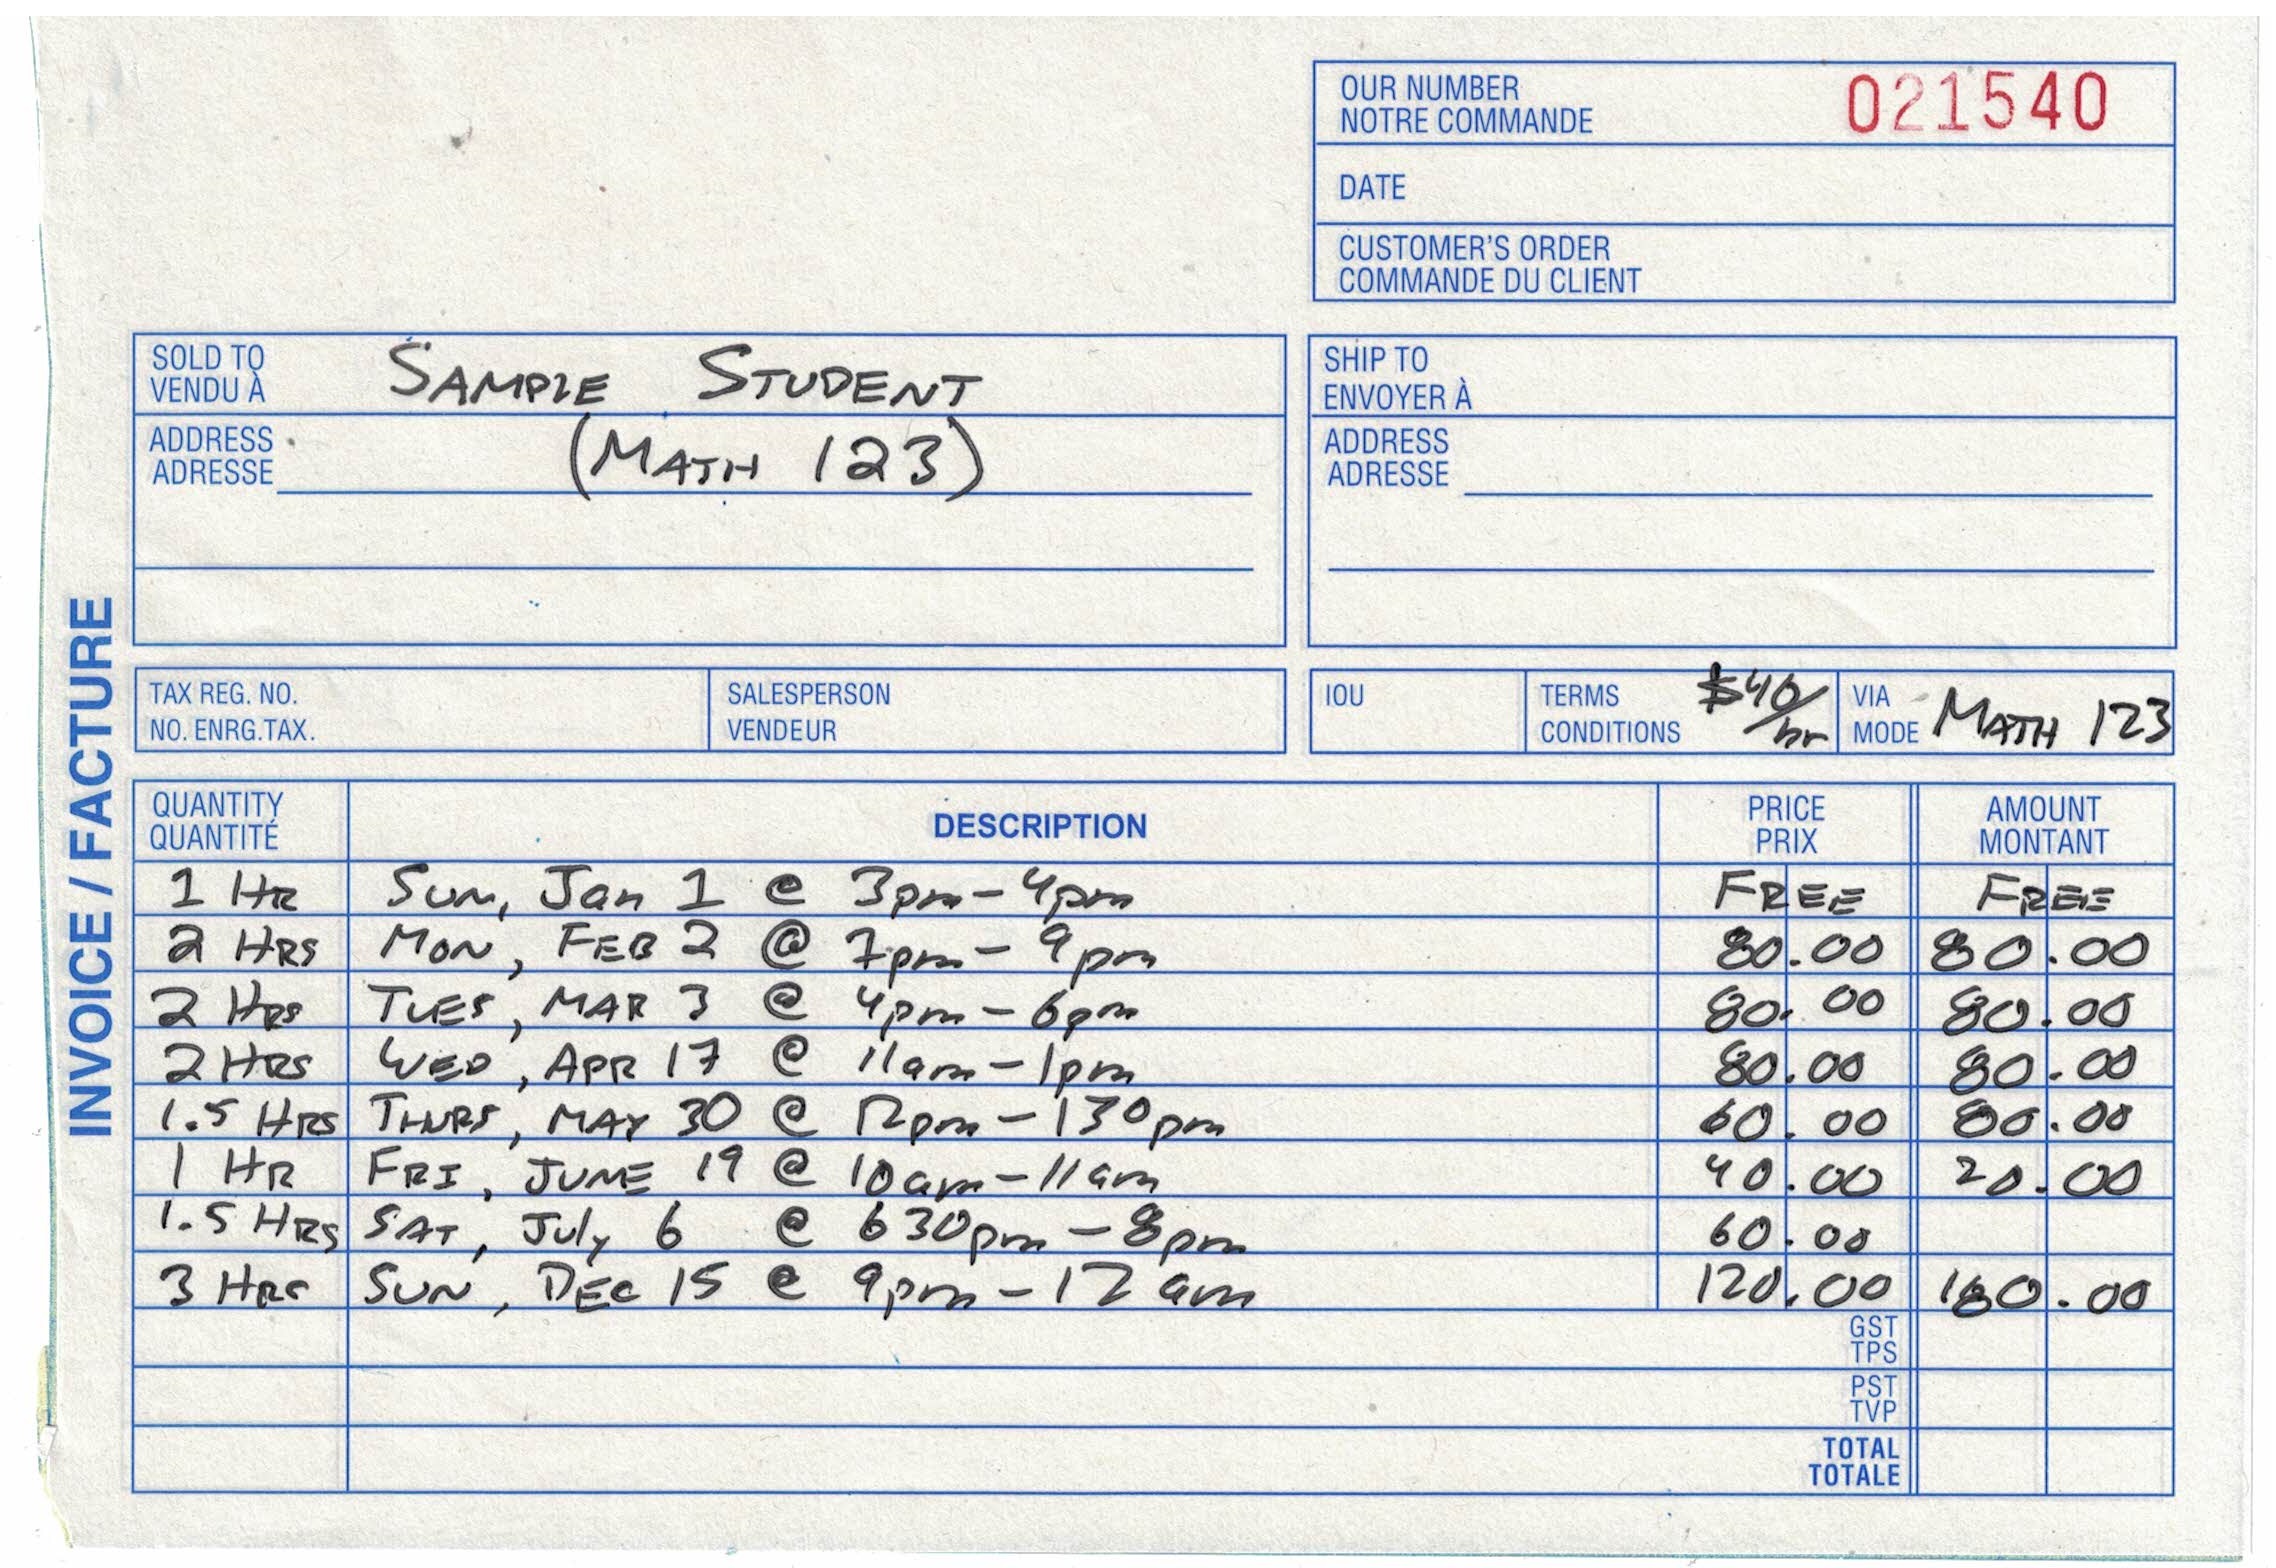 OUR NUMBER
NOTRE COMMANDE
021540
DATE
CUSTOMER'S ORDER
COMMANDE DU CLIENT
SOLD TO
VENDU À
SAMPLE STUDENT
ADDRESS
ADRESSE
(MATH 123)
SHIP TO
ENVOYER À
ADDRESS
ADRESSE
INVOICE / FACTURE
TAX REG. NO.
NO. ENRG.TAX.
SALESPERSON
VENDEUR
IOU
TERMS
CONDITIONS
$40/hr
VIA
MODE
MATH 123
QUANTITY
QUANTITÉ
DESCRIPTION
PRICE
PRIX
AMOUNT
MONTANT
1 HR SUN, Jan 1 @ 3pm-4pm FREE FREE
2 HRS MON, FEB 2 @ 7pm - 9pm 80.00 80.00
2 HRS TUES, MAR 3 @ 4pm - 6pm 80.00 80.00
2 HRS WED, APR 17 @ 11am-1pm 80.00 80.00
1.5 HRS THURS, MAY 30 @ 12pm-130pm 60.00 80.00
1 HR FRI, JUNE 19 @ 10am-11am 40.00 20.00
1.5 HRS SAT, July 6 @ 630pm-8pm 60.00
3 HRS SUN, DEC 15 @ 9pm-12am 120.00 180.00
GST
TPS
PST
TVP
TOTAL
TOTALE